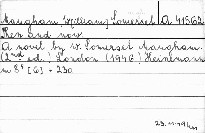 Maugham William Somerset A 41562
Then and now.
A novel by W. Somerset Maugham.
(2nd ed.) London (1946) Heinemann
in 8º [6] + 230.
23.11.1946